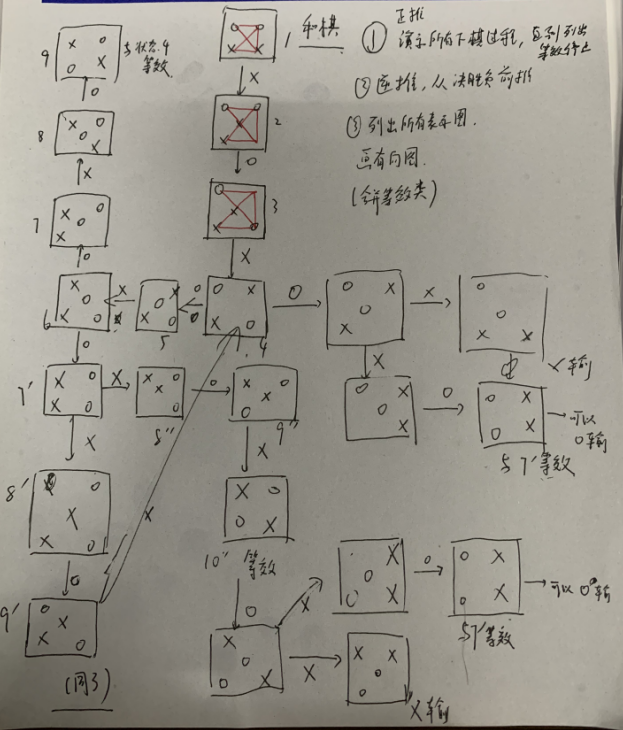 和棋
① 正推
演示所有下棋过程,直到列出
等效停止
② 逆推,从决胜负前推
③ 列出所有表示图.
画有向图.
(含等效类)
1
X
2
O
3
X
9
与状态4
等效.
O
8
X
7
O
6
X
5
O
4
O
X
O
7'
X
8''
O
9''
X
X
O
X输
O
与7'等效
可以
O输
X
8'
O
9'
(同3)
X
10''
等效
O
X
O
与7'等效
可以O输
X
X输